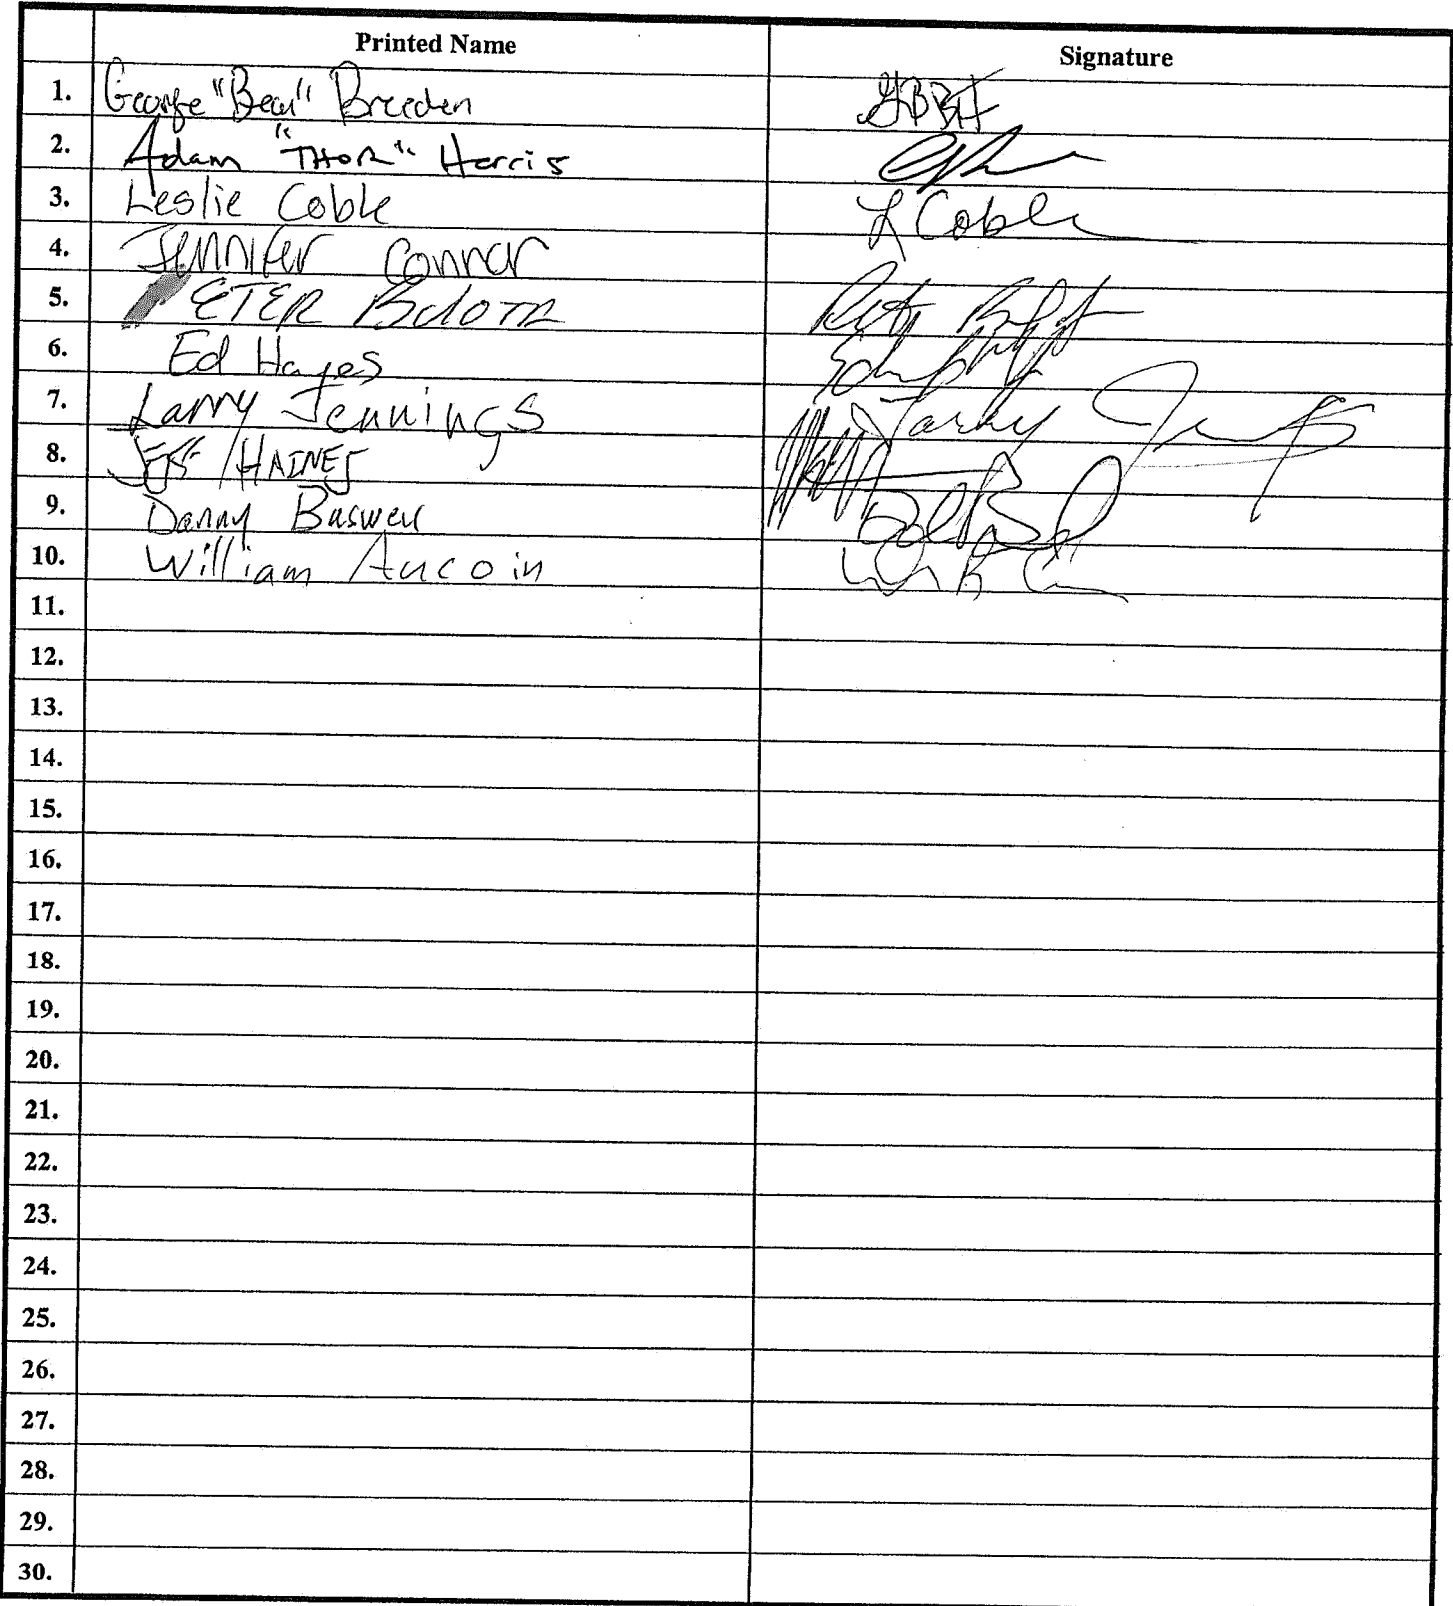 Printed Name Signature
1. George "Bear" Breeden
2. Adam "THOR" Harris
3. Leslie Coble L Coble
4. Jennifer Connor
5. PETER
6. Ed Hayes
7. Larry Jennings Larry Jennings
8. Jeff HAINES
9. Danny
10. William Aucoin
11.
12.
13.
14.
15.
16.
17.
18.
19.
20.
21.
22.
23.
24.
25.
26.
27.
28.
29.
30.